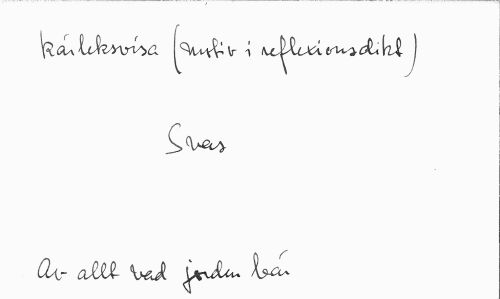 kärleksvisa (motiv i reflexionsdikt)
Svas
Av allt vad jorden bär